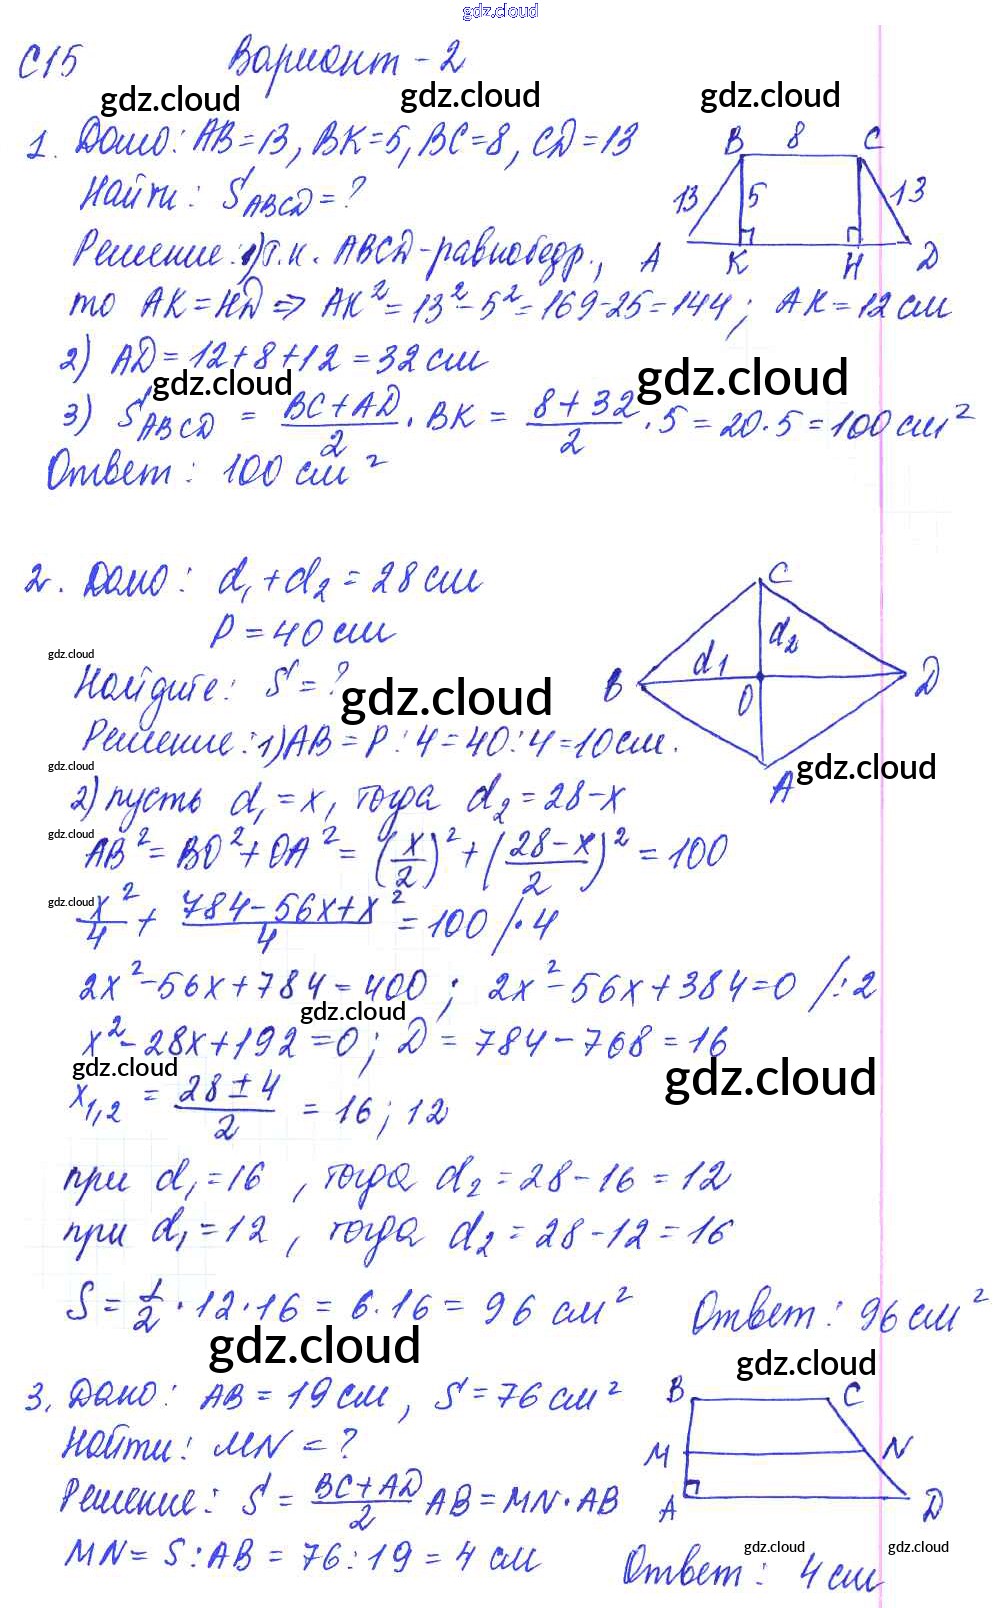 gdz.cloud
С15 Вариант - 2
gdz.cloud gdz.cloud gdz.cloud
1. Дано: AB=13, BK=5, BC=8, CD=13
Найти: S_ABCD=?
B 8 C
13 5 13
A K H D
Решение: 1) т.к. ABCD-равнобедр.,
то AK=HD ⇒ AK²=13²-5²=169-25=144; AK=12 см
2) AD=12+8+12=32 см
gdz.cloud gdz.cloud
3) S_ABCD = (BC+AD)/2 · BK = (8+32)/2 · 5 = 20·5 = 100 см²
Ответ: 100 см²
2. Дано: d₁+d₂=28 см
P=40 см
gdz.cloud
Найдите: S=?
gdz.cloud
C
d₂
d₁
B O D
A
Решение: 1) AB=P:4=40:4=10 см.
gdz.cloud gdz.cloud
2) пусть d₁=x, тогда d₂=28-x
gdz.cloud
AB²=BO²+OA²=(x/2)²+((28-x)/2)²=100
gdz.cloud
x²/4 + (784-56x+x²)/4 = 100 /·4
2x²-56x+784=400; 2x²-56x+384=0 /:2
gdz.cloud
x²-28x+192=0; D=784-768=16
gdz.cloud gdz.cloud
x₁,₂ = (28±4)/2 = 16; 12
при d₁=16, тогда d₂=28-16=12
при d₁=12, тогда d₂=28-12=16
S=1/2·12·16=6·16=96 см² Ответ: 96 см²
gdz.cloud gdz.cloud
3. Дано: AB=19 см, S=76 см²
Найти: MN=?
B C
M N
A D
Решение: S=(BC+AD)/2 AB=MN·AB
MN=S:AB=76:19=4 см
gdz.cloud gdz.cloud
Ответ: 4 см